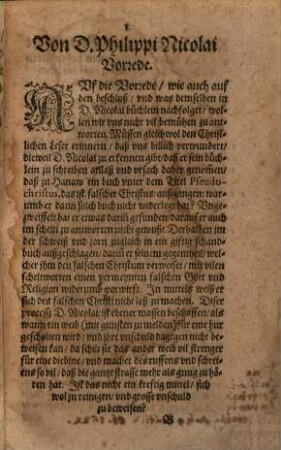 Von D. Philippi Nicolai
Vorrede.
AVf die Vorrede/ wie auch auf
den beschluß/ vnd was demselben in
D. Nicolai büchlein nachfolget/ wol-
len wir vns nicht vil bemühen zu ant-
worten. Müssen gleichwol den Christ-
lichen Leser erinnern/ daß vns billich verwundere/
dieweil D. Nicolai zu erkennen gibt/ daß er sein büch-
lein zu schreiben anlaß vnd vrsach daher genomen/
daß zu Hanaw ein buch vnter dem Titel Pseudo-
christus, das ist falscher Christus/ außgangen: war-
umb er dann solch buch nicht widerlegt hat? Vnge-
zweiffelt hat er etwas darin gefunden/ darauf er auch
im schelt zu antworten nicht gewußt. Derhalben im
der schweiß vnd zorn zugleich in ein giftig schand-
buch außgeschlagen/ darin er seinem gegenthei/ wel-
cher ihm den falschen Christum verweiset/ mit vilen
scheltworten einen vermeynten falschen Gott vnd
Religion widerumb vorwirft. In mittels weiß er
sich des falschen Christi nicht loß zu machen. Diser
proceß D. Nicolai/ ist ebener massen beschaffen/ als
wann ein weib (mit gunsten zu melden) für eine hur
gescholten wird/ vnd ihre vnschuld dagegen nicht be-
weisen kan/ da schilt sie das ander weib vil strenger
für eine diebine/ vnd machet des ruffens vnd schrei-
ens so vil/ daß die gantze strasse mehr als gnug zu hö-
ren hat. Ist das nicht ein krefftig mittel/ sich
wol zu reinigen/ vnd grosse vnschuld
zu beweisen?